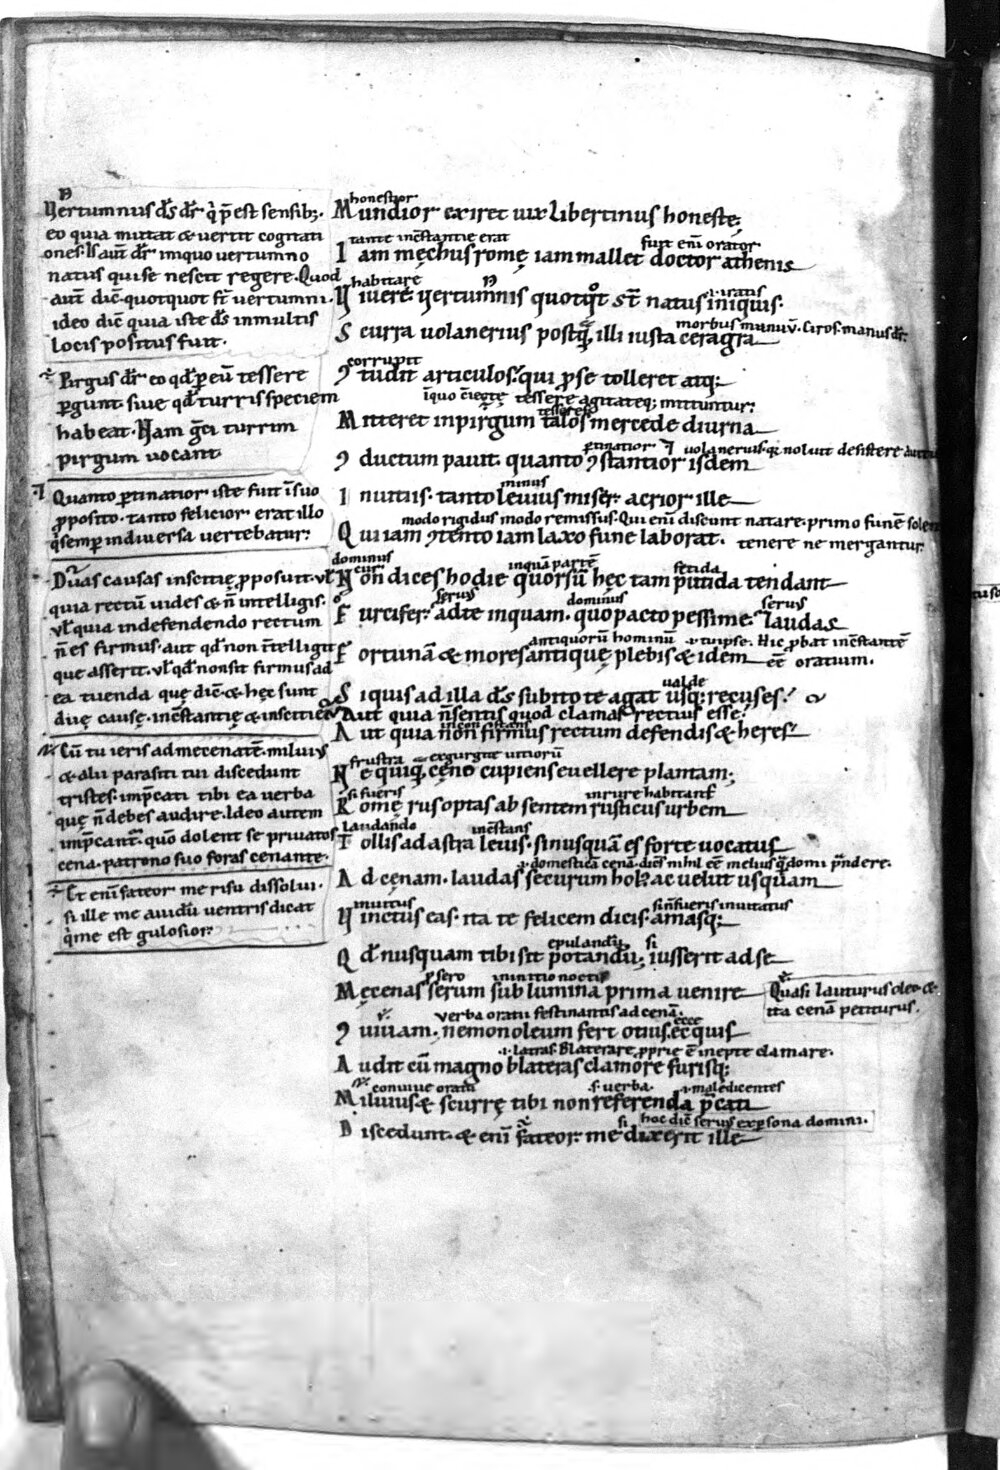 Vertumnus ds̄ dr̄ q̇ p̄est sensib;.
eo quia mutat & uertit cogitati
ones. Is aut̄ dr̄ iniquo uertumno
natus qui se nescit regere. Quod
aut̄ dic̄ quotquot st̄ uertumni.
ideo dic̄ quia iste ds̄ in multis
locis positus fuit.
Pirgus dr̄ eo qd̄ ꝑ eū tessere
ꝑgunt. siue qd̄ turris speciem
habeat. Nam gc̄i turrim
pirgum uocant.
Quanto ꝑtinatior iste fuit ī suo
ꝓposito. tanto felicior erat illo
q̇ semꝑ in diuersa uertebatur.
Duas causas insertię ꝓposuit. ul̄
quia rectū uides & n̄ intelligis.
ul̄ quia in defendendo rectum
n̄ es firmus. aut qd̄ non ītelligit
que asserit. ul̄ qd̄ non sit firmus ad
ea tuenda quę dic̄. & hęc sunt
duę causę. inc̄stantię & insertię
Cū tu ieris ad mecenatē. miluiꝰ
& alii parasiti tui discedunt
tristes. imp̄cati tibi ea uerba
quę n̄ debes audire. Ideo autem
imp̄cant̄. quō dolent se priuatos
cena. patrono suo foras cenante.
Et enī fateor me risu dissolui.
si ille me auidū uentris dicat
q̇ me est gulosior.
honestior
Mundior exiret uix libertinus honeste;
tante inc̄stantie erat fuit enī orator
Iam męchus romę iam mallet doctor athenis
habitare .i. iratis
Viuere uertumnis quotq̊t st̄ natus iniquis.
morbus manuū. Ciros. manus dr̄.
Scurra uolanerius postq̄ illi iusta ceragra
corrupit
ꝯtudit articulos. qui ꝓ se tolleret atq;
ī quo tessere agitateq; mittuntur.
tesseras
Mitteret in pirgum talos mercede diurna
ꝑtinatior uolanerius. qi noluit desistere
ꝯductum pauit. quanto ꝯstantior isdem
minus
In uitiis. tanto leuius miser. acrior ille
modo rigidus modo remissus. Qui enī discunt natare. primo funē
Qui iam ꝯtento iam laxo fune laborat. tenere ne mergantur.
dominus cur inquā partē fetida
Non dices hodie quorsū hęc tam putida tendant
seruus dominus seruus
Furcifer. ad te inquam. quo pacto pessime. laudas
antiquorū hominū tu ipse. Hic ꝓbat inc̄stantē
Fortunā & mores antiquę plebis & idem ēē oratium.
ualde
Si quis ad illa ds̄ subito te agat usq; recuses.
Aut quia n̄ sentis quod clamas rectius esse.
inconstans
Aut quia non firmus rectum defendis & heres
frustra exurgere uitiorū
Ne quiq̄ cęno cupiens euellere plantam;
si fueris in rure habitant̄
Romę rus optas absentem rusticus urbem
laudando inc̄stans
Tollis ad astra leuis. si nusquā es forte uocatus
.i. domesticā cenā. dic̄s nihil ēē melius q̄ domi prandere.
Ad cęnam. laudas securum holꝰ. ac uelut usquam
inuitus si n̄ fueris inuitatus
Vinctus eas. ita te felicem dicis. amasq;
epulandū si
Qd̄ nusquam tibi sit potandū; iusserit ad se
ꝑ sero in initio noctis
Męcenas serum sub lumina prima uenire
Quasi lauturus oleo &
ita cenā petiturus.
uerba oratii festinantis ad cenā. ecce
ꝯuiuam. nemon oleum fert otius. ecquis
.i. latras. Blaterare ꝓprie ē inepte clamare.
Audit cū magno blateras clamore furisq;
conuiue oratii .s. uerba. .i. maledicentes
Miluius & scurrę tibi non referenda p̄cati
si hoc dic̄ seruus ex ꝑsona domini.
Discedunt. & enī fateor me dixerit ille